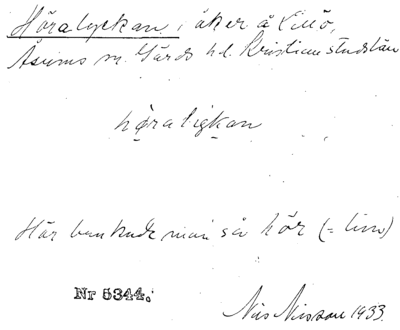 Höralyckan i åker å Lillö,
Åsums sn. Gärds hd. Kristianstads län
hö̜raligkan
Här bankade man så hör (= lin)
Nr 5344.
Nils Nilsson 1933.